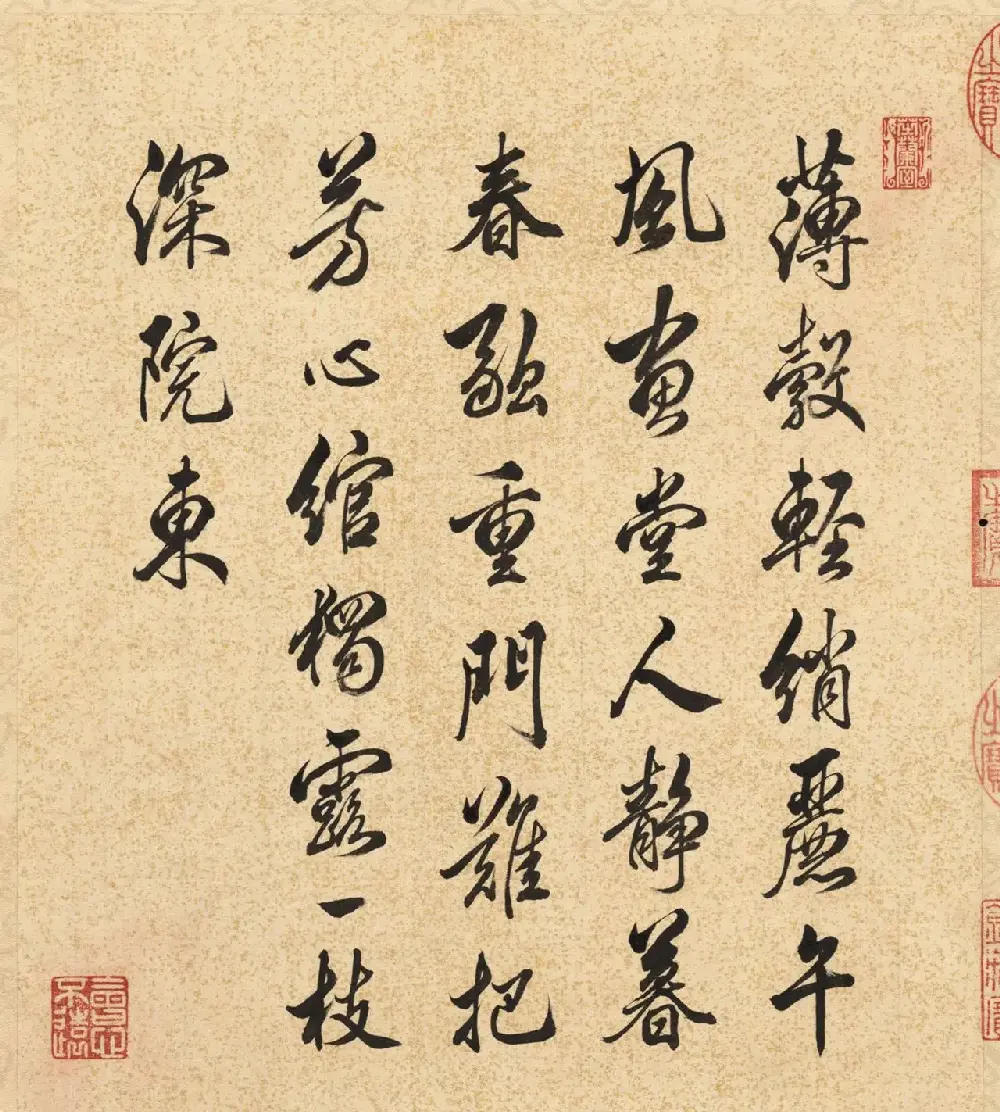 薄縠輕綃麗午
風畫堂人靜暮
春融重門難把
芳心綰獨露一枝
深院東